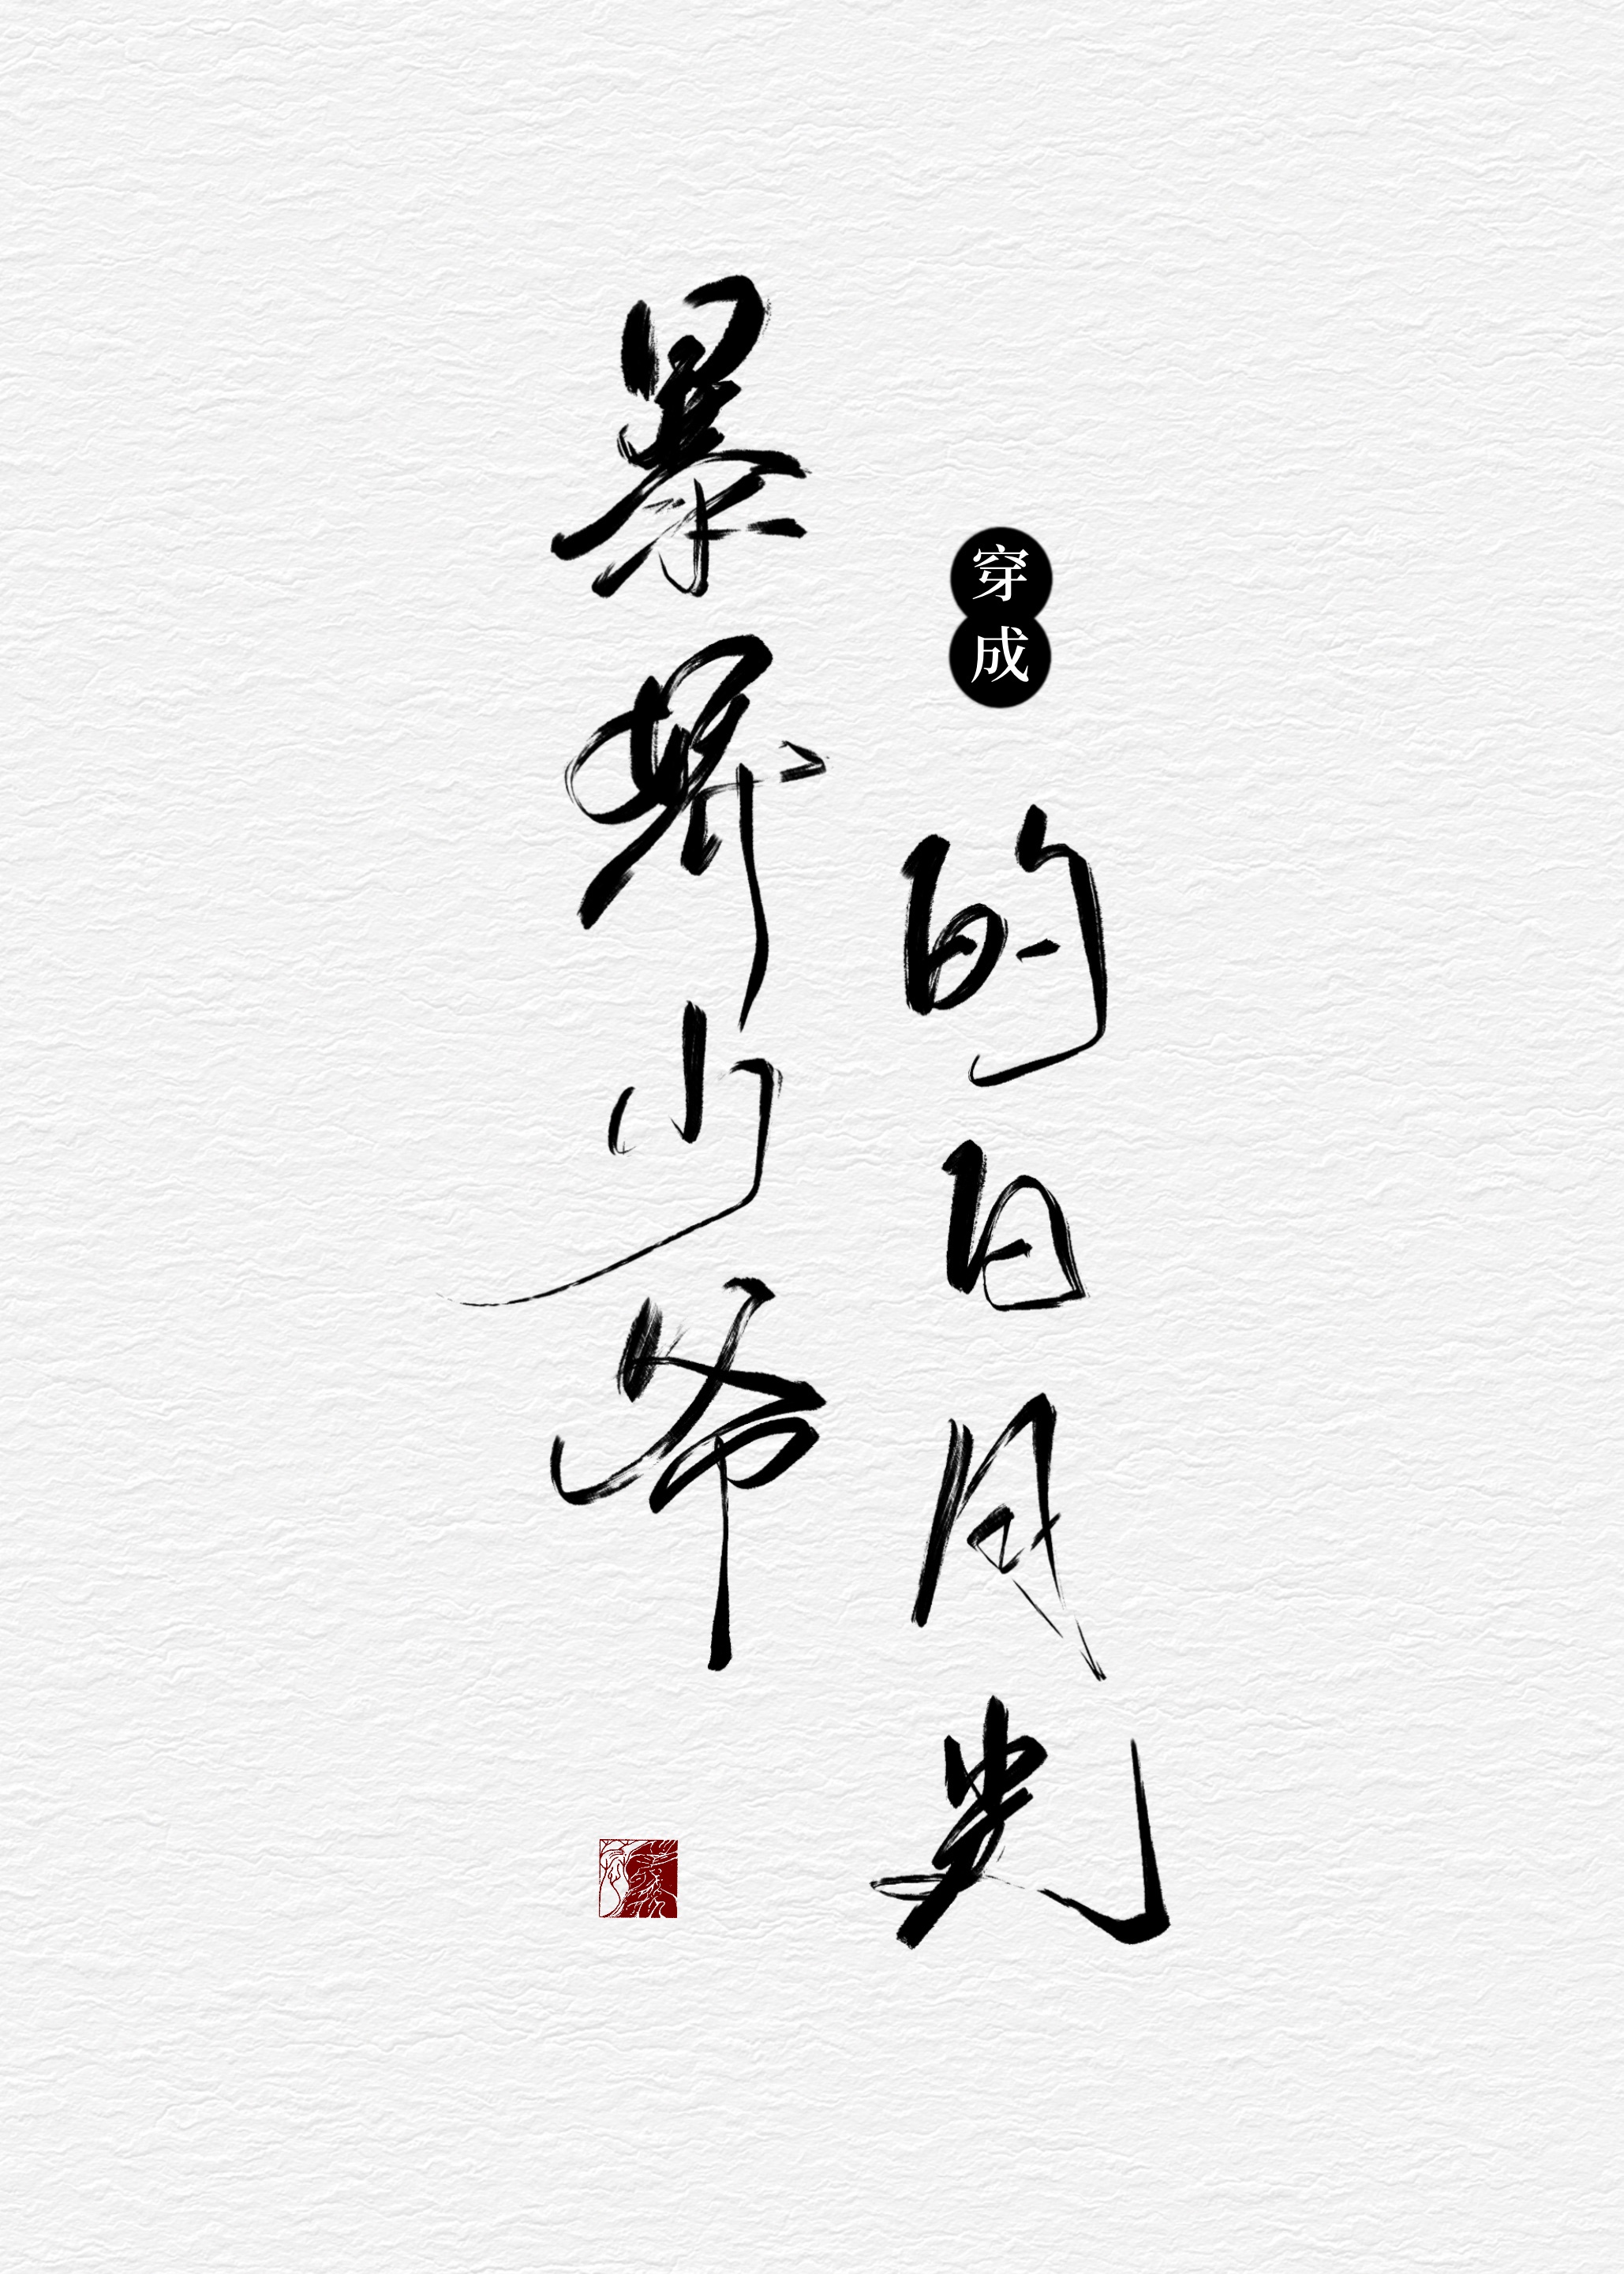 穿成
暴娇少爷
的白月光